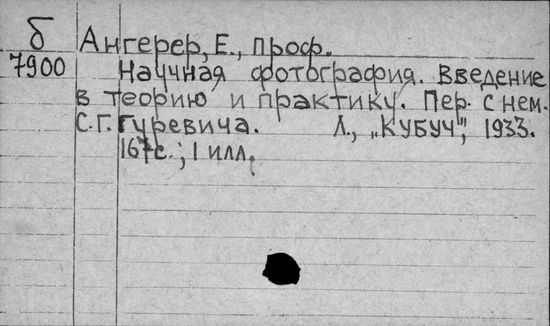 б
7900
Ангерер, Е., проф.
Научная фотография. Введение
в теорию и практику. Пер. с нем.
С.Г. Гуревича. Л., „КУБУЧ", 1933.
167с.; 1 илл.